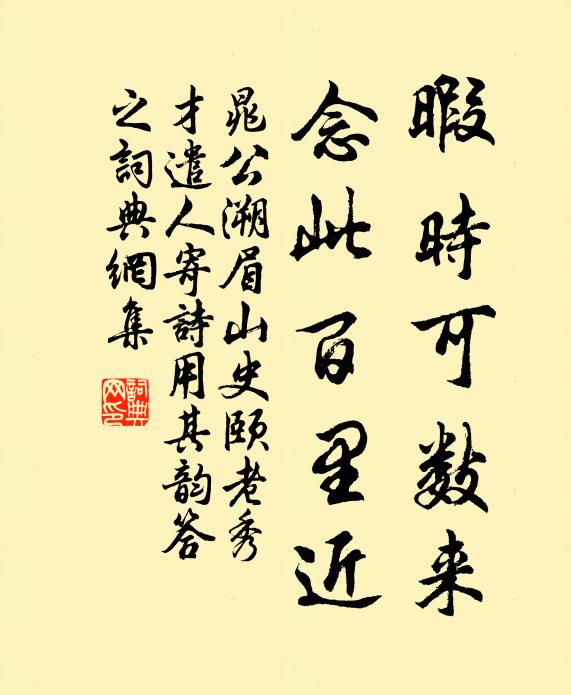 暇時可數来
念此百里近
晁公溯眉山史頤老秀
才遣人寄詩用其韵答
之詞典網集
詞典
网印